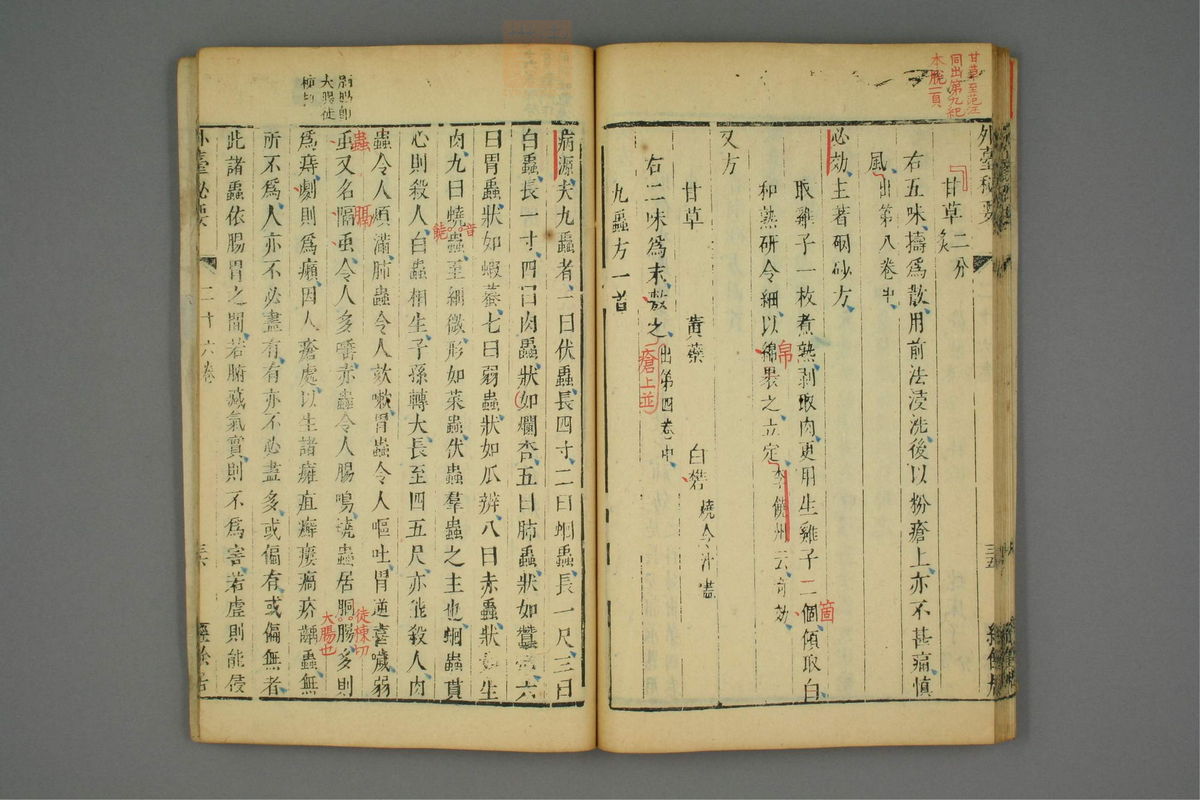 甘草至范汪
同出第九紀
本脫一頁
外臺秘要
甘草二分炙
右五味擣爲散用前法淩洗後以粉瘡上亦不甚痛慎
風出第八卷中
必効主著硇砂方
取雞子一枚煮熟剥取肉更用生雞子二個傾取白
箇
和熟研令細以綿裹之立定李饒州云奇効
帛
又方
甘草 黃蘗 白礬燒令汁盡
右二味爲末敷之出第四卷中
瘡上並
九蟲方一首
病源夫九蟲者一曰伏蟲長四寸二曰蛔蟲長一尺三曰
白蟲長一寸四曰肉蟲狀如爛杏五曰肺蟲狀如蠶六
曰胃蟲狀如蝦蟇七曰弱蟲狀如瓜辨八曰赤蟲狀如生
肉九曰蟯蟲至細微形如菜蟲伏蟲羣蟲之主也蛔蟲貫
音
饒
心則殺人白蟲相生子孫轉大長至四五尺亦能殺人肉
蟲令人煩滿肺蟲令人欬嗽胃蟲令人嘔吐胃逆喜噦弱
蟲又名隔蟲令人多唾赤蟲令人腸鳴蟯蟲居胴腸多則
蟲
膈
徒棟切
大腸也
爲痔劇則爲癩因人瘡處以生諸癰疽癬瘻瘑疥齲蟲無
所不爲人亦不必盡有有亦不必盡多或偏有或偏無者
此諸蟲依腸胃之間若腑臟氣實則不爲害若虛則能侵
外臺秘要
二十六卷
三六
經餘居